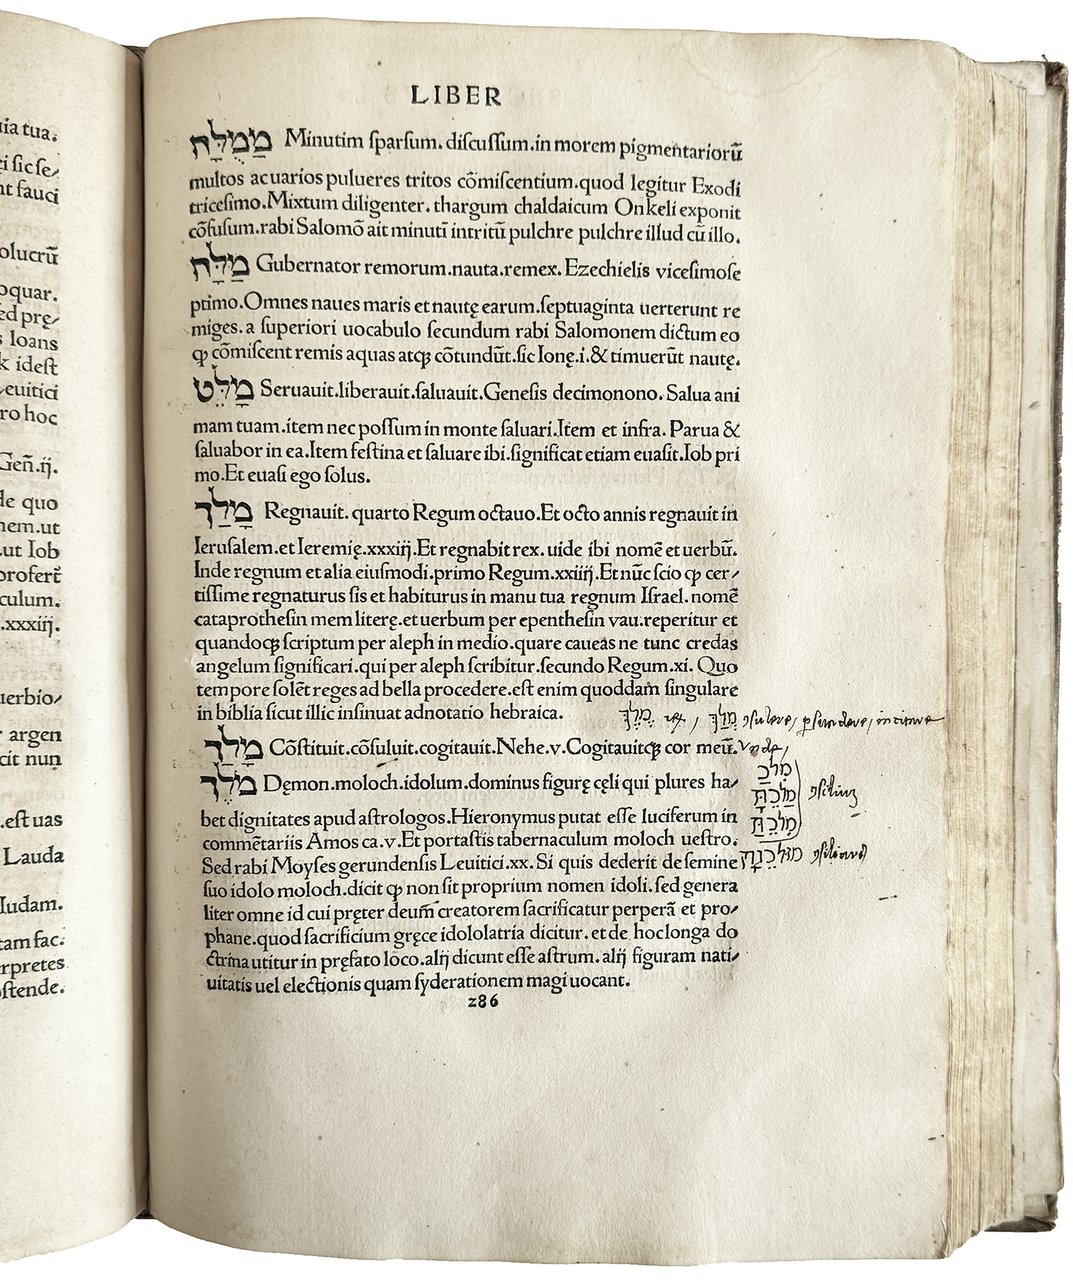 uia tua.
ei sic se⸗
nt fauci
olucrũ
oquar.
ed prę⸗
s Ioans
k idest
Leuitici
ro hoc
Geñ.ij.
de quo
nem.ut
.ut Iob
profert̃
culum.
.xxxiij.
uerbio⸗
argen
cit nun
.est uas
Lauda
Iudam.
tam fac.
rpretes
ostende.
LIBER
מְמֻלָּח Minutim sparsum. discussum.in morem pigmentariorũ
multos ac uarios pulueres tritos cõmiscentium.quod legitur Exodi
tricesimo.Mixtum diligenter. thargum chaldaicum Onkeli exponit
cõfusum.rabi Salomõ ait minutĩ intritũ pulchre pulchre illud cũ illo.
מַלָּח Gubernator remorum.nauta.remex. Ezechielis vicesimose
ptimo.Omnes naues maris et nautę earum.septuaginta uerterunt re
miges. a superiori uocabulo secundum rabi Salomonem dictum eo
ꝙ cõmiscent remis aquas atqꝫ cõtundũt.sic Ionę.i.& timuerũt nautę.
מָלַט Seruauit.liberauit.saluauit.Genesis decimonono. Salua ani
mam tuam.item nec possum in monte saluari.Item et infra. Parua &
saluabor in ea.Item festina et saluare ibi.significat etiam euasit.Iob pri
mo.Et euasi ego solus.
מָלַךְ Regnauit. quarto Regum octauo.Et octo annis regnauit in
Ierusalem.et Ieremię.xxxiij.Et regnabit rex. uide ibi nomẽ et uerbũ.
Inde regnum et alia eiusmodi.primo Regum.xxiiij.Et nũc scio ꝙ cer⸗
tissime regnaturus sis et habiturus in manu tua regnum Israel. nomẽ
cataprothesin mem literę.et uerbum per epenthesin vau.reperitur et
quandoqꝫ scriptum per aleph in medio.quare caueas ne tunc credas
angelum significari.qui per aleph scribitur.secundo Regum.xi. Quo
tempore solẽt reges ad bella procedere.est enim quoddam singulare
in biblia sicut illic insinuat adnotatio hebraica.
מֶלֶךְ rex,
מָלַךְ Cõstituit.cõsuluit.cogitauit.Nehe.v.Cogitauitqꝫ cor meũ.
מֹלֶךְ Dęmon.moloch.idolum.dominus figurę cęli qui plures ha⸗
bet dignitates apud astrologos.Hieronymus putat esse luciferum in
commẽtariis Amos ca.v.Et portastis tabernaculum moloch uestro.
Sed rabi Moyses gerundensis Leuitici.xx. Si quis dederit de semine
suo idolo moloch.dicit ꝙ non sit proprium nomen idoli. sed genera
liter omne id cui pręter deum̃ creatorem sacrificatur perperã et pro⸗
phane.quod sacrificium gręce idololatria dicitur. et de hoc longa do
ctrina utitur in pręfato loco.alij dicunt esse astrum. alij figuram nati⸗
uitatis uel electionis quam syderationem magi uocant.
286